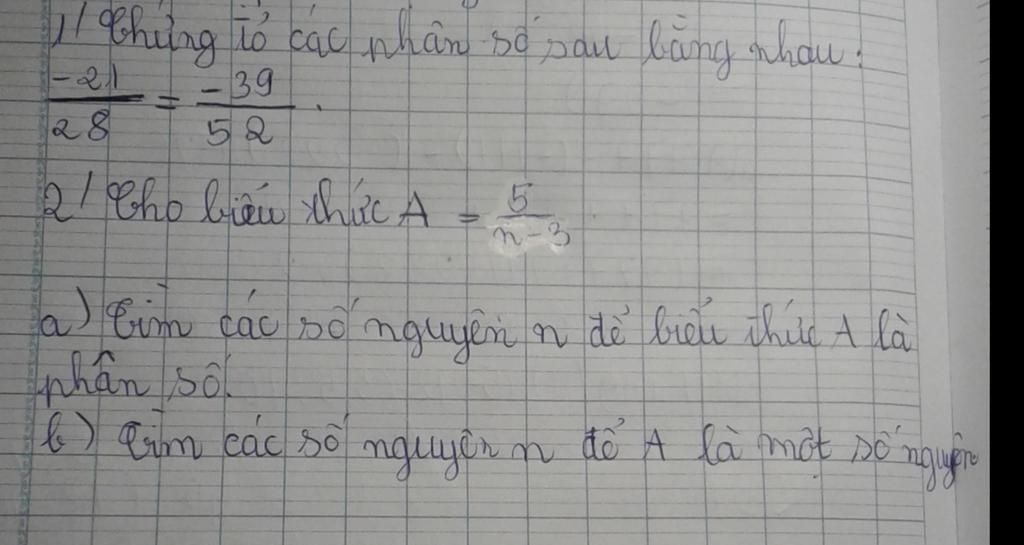 1/ Chứng tỏ các phân số sau bằng nhau:
-21/28 = -39/52.
2/ Cho biểu thức A = 5/n-3
a) Tìm các số nguyên n để biểu thức A là
phân số.
b) Tìm các số nguyên n để A là một số nguyên